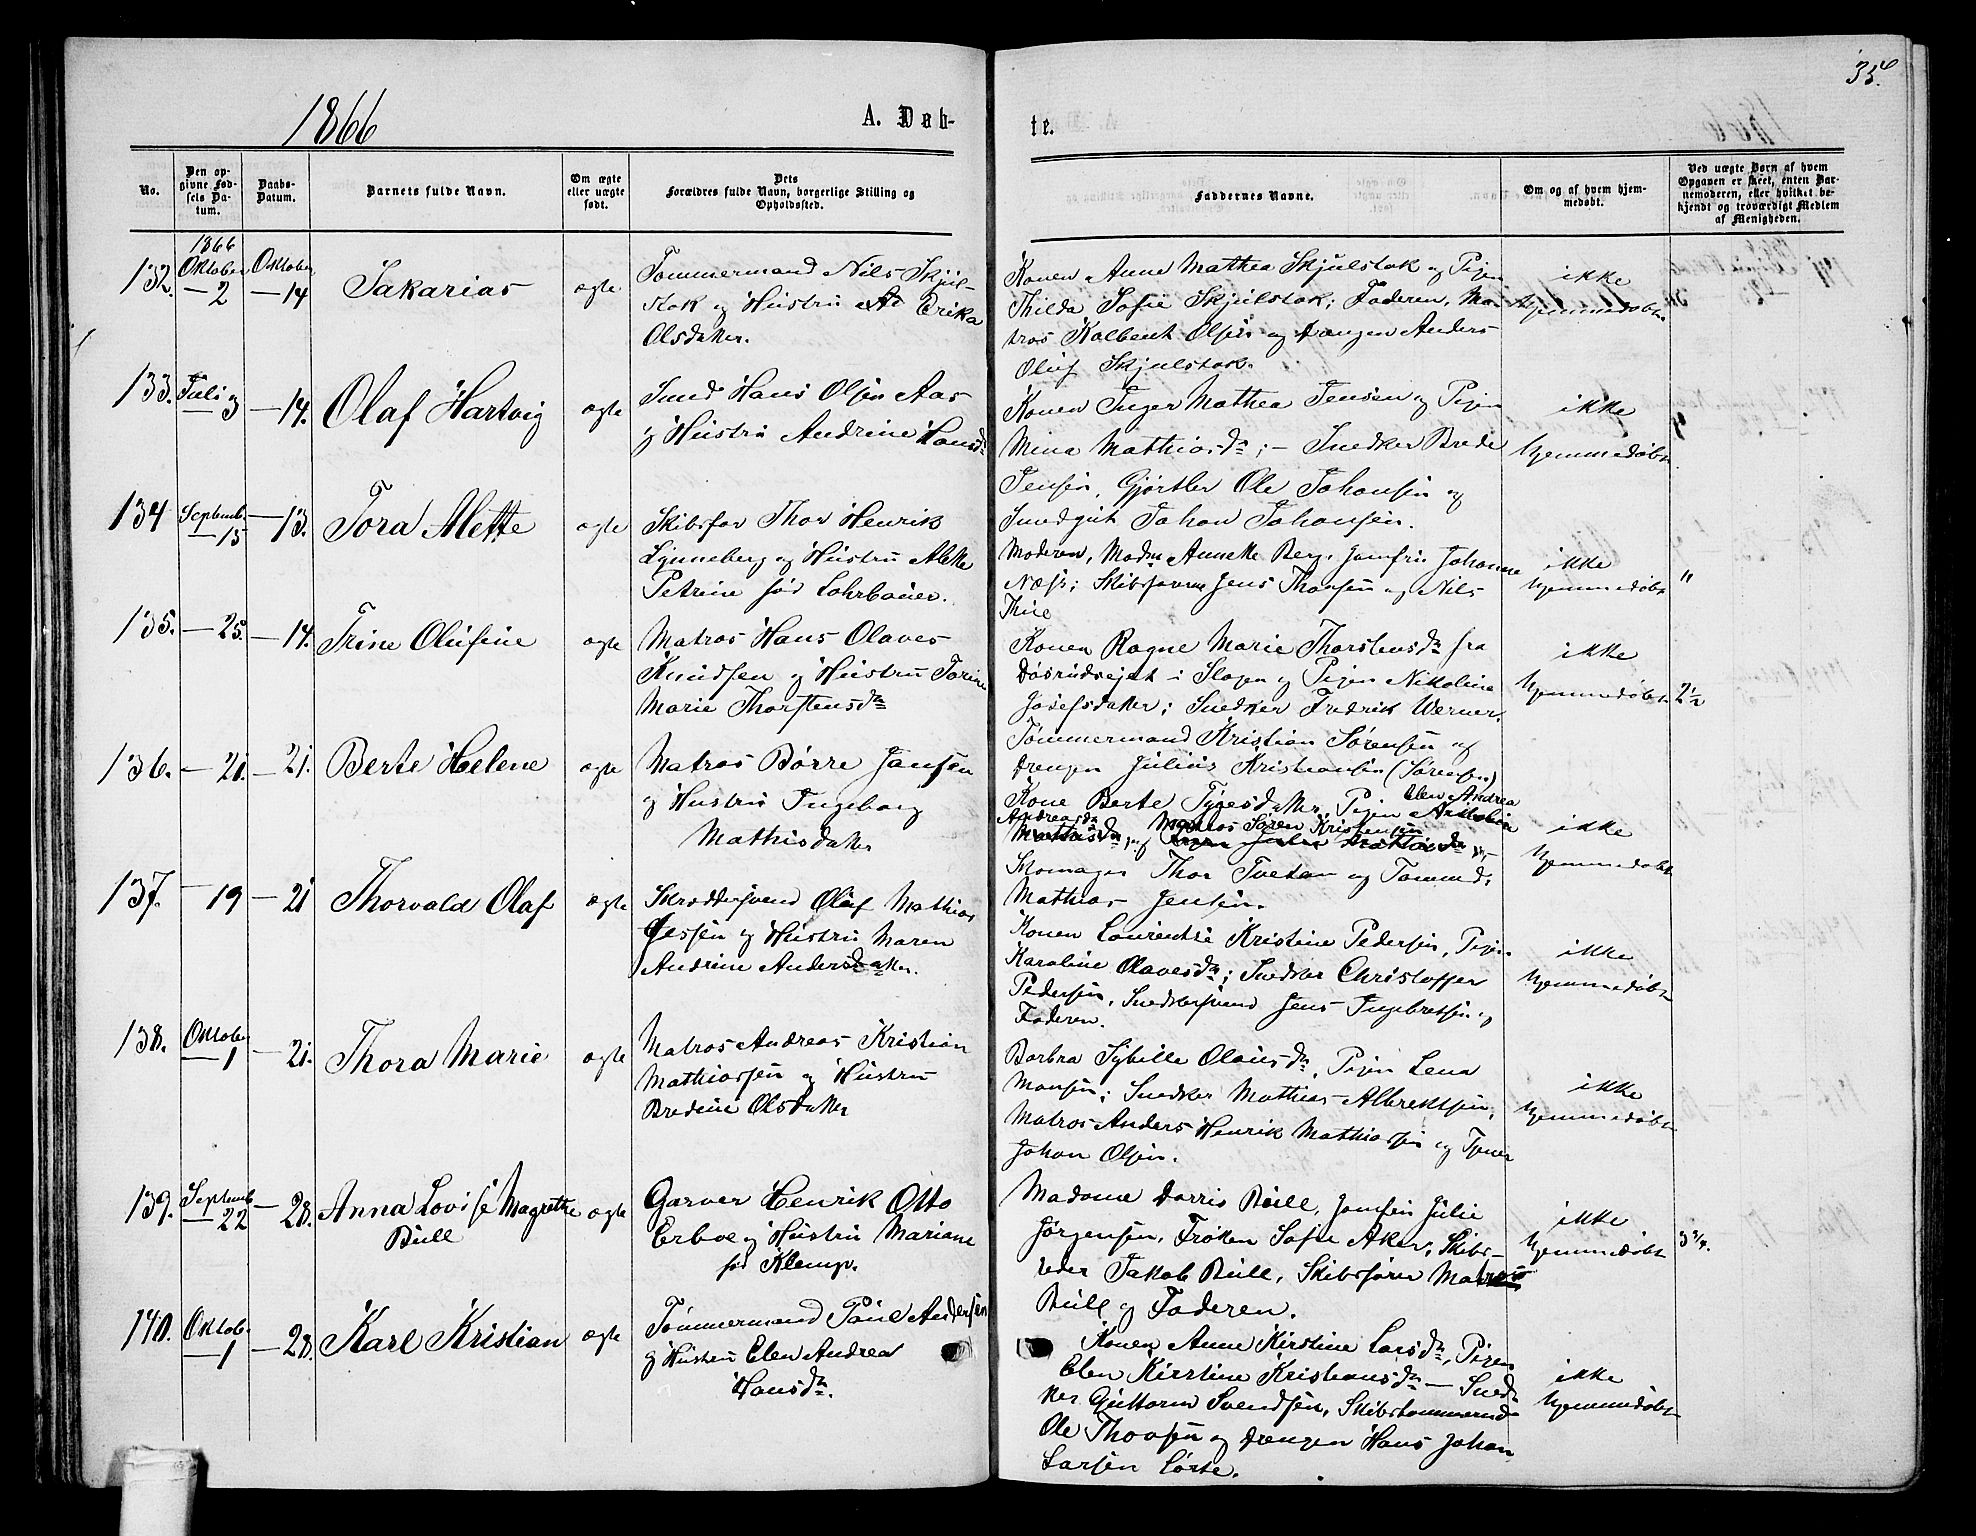 35
1866
A. Dåb-
te.
No.
Den opgivne Fødsels Datum.
Daabs-Datum.
Barnets fulde Navn.
Om ægte eller uægte født.
Dets Forældres fulde Navn, borgerlige Stilling og Opholdssted.
Faddernes Navne.
Om og af hvem hjemmedøbt.
Ved uægte Børn af hvem Opgaven er skeet, enten Barnemoderen, eller hvilket bekjendt og troværdigt Medlem af Menigheden.
1866
132. Oktober 2 Oktober 14 Sakarias ægte
Tømmermand Nils Skjul-
stok og Hustru Erika
Olsdatter.
Konen Anne Mathea Skjulstok og Pigen
Thilda Sofie Skjulstok; Faderen, Ma-
tros Kolbent Olsen og Drengen Anders
Oluf Skjulstok.
ikke
hjemmedøbt
133. Juli 3 — 14. Olaf Hartvig ægte
Smed Hans Olsen Aas
og Hustru Andrine Hansd.
Konen Inger Mathea Jensen og Pigen
Mina Mathiasd.; — Snedker Brede
Jensen, Gjørtler Ole Johansen og
Smedgut Johan Johansen.
ikke
hjemmedøbt
134 Septemb 15 — 13. Tora Alette ægte
Skibsfør Thor Henrik
Lynneberg og Hustru Alette
Petrine fød Lohrbauer.
Moderen, Mad. Annette Berg, Jomfru Johanne
Næss; Skibsførerne Jens Thorsen og Nils
Thue
ikke
hjemmedøbt
"
135. — 25. — 14. Trine Olufine ægte
Matros Hans Olaves
Knudsen og Hustru Torine
Marie Thorstensd
Konen Ragne Marie Thorstensd fra
Døsrudvejet i Slagen og Pigen Nikoline
Josefsdatter; Snedker Fredrik Werner,
Tømmermand Kristian Sørensen og
Drengen Julius Kristiansen (Sørensen)
ikke
hjemmedøbt
2 1/2
136. — 21. — 21. Berte Helene ægte
Matros Børre Jansen
og Hustru Ingeborg
Mathisdatter
Kone Berte Tygesdatter, Pigen Elen Andrea
Andreasd Matros Søren Kristensen
Skomager Thor Tvetan og Tømmd.
Mathias Jensen.
ikke
hjemmedøbt
137. — 19 — 21 Thorvald Olaf ægte
Skræddersvend Oluf Mathias
Jessen og Hustru Maren
Andrine Andersdatter.
Konen Laurentse Kristine Pedersen, Pigen
Karoline Olavesd; Snedker Christoffer
Pedersen, Snedkersvend Jens Ingebretsen og
Faderen.
ikke
hjemmedøbt
138. Oktober 1 — 21. Thora Marie ægte
Matros Andreas Kristian
Mathiassen og Hustru
Bredine Olsdatter
Barbra Sybille Olausd, Pigen Lena
Monsen; Snedker Mathias Albrektsen,
Matros Anders Henrik Mathiassen og
Johan Olsen.
ikke
hjemmedøbt
139. Septemb 22 — 28. Anna Lovise Magrethe
Bull ægte
Garver Henrik Otto
Erboe og Hustru Mariane
fød Klemp.
Madame Dorris Bull, Jomfru Julie
Jørgensen, Frøken Sofie Aker, Skibs-
reder Jakob Bull, Skibsfører
Bull og Faderen.
ikke
hjemmedøbt
3 3/4.
140. Oktob. 1 — 28. Karl Kristian ægte
Tømmermand Paul Andersen
og Hustru Elen Andrea
Hansd.
Konen Anne Kirstine Larsd, Pigen
Elen Kirstine Kristiansd — Sned-
ker Guttorm Svendsen, Skibstømmermd
Ole Thorsen og Drengen Hans Johan
Larsen Lørte.
ikke
hjemmedøbt